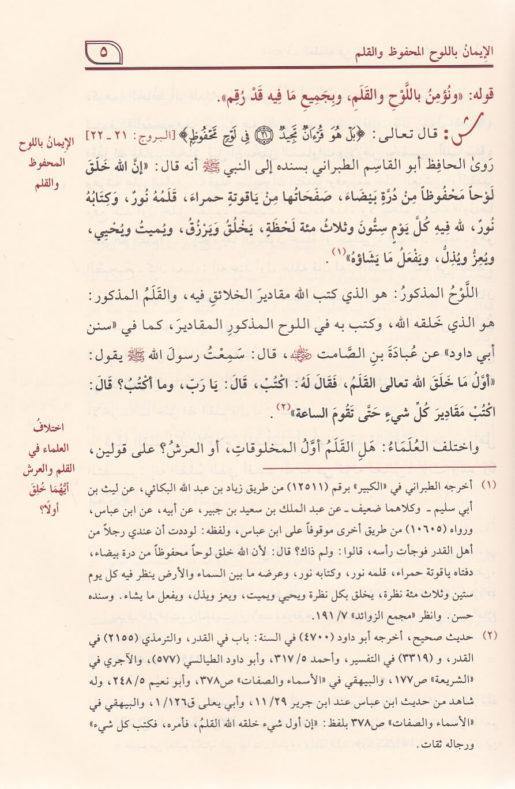 الإيمانُ باللوح المحفوظ والقلم
٥
قوله: «ونُؤمِنُ باللَّوْحِ والقَلَمِ، وبِجَميعِ مَا فيه قَدْ رُقِم».
ش: قال تعالى: ﴿بَلْ هُوَ قُرْءَانٌ مَّجِيدٌ ۝٢١ فِي لَوْحٍ مَّحْفُوظٍۭ﴾ [البروج: ٢١ ـ ٢٢]
الإيمانُ باللوح
المحفوظ
والقلم
روىٰ الحافِظ أبو القاسِم الطبراني بسنده إلى النبي ﷺ أنه قال: «إنَّ اللهَ خَلَقَ
لَوْحاً مَحْفُوظاً مِنْ دُرَّةٍ بَيْضَاءَ، صَفَحَاتُها مِنْ يَاقوتةٍ حمراءَ، قَلَمُهُ نُورٌ، وكِتَابُهُ
نُورٌ، لله فِيهِ كُلَّ يَوْمٍ سِتُّونَ وثلاثُ مئة لَحْظَةٍ، يَخْلُقُ وَيَرْزُقُ، ويُميتُ ويُحْيِي،
ويُعِزُّ ويُذِلُّ، ويَفْعَلُ مَا يَشَاؤُه»(١)
اللَّوْحُ المذكورُ: هو الذي كتب الله مقاديرَ الخلائقِ فيه، والقَلَمُ المذكور:
هو الذي خَلَقه الله، وكتب به في اللوح المذكورِ المقاديرَ، كما في «سنن
أبي داود» عن عُبادَةَ بنِ الصَّامت رضي الله عنه، قال: سَمِعْتُ رسولَ اللهِ ﷺ يقول:
«أوَّلُ مَا خَلَقَ الله تعالى القَلَمُ، فَقَالَ لَهُ: اكْتُبْ، قَالَ: يَا رَبِّ، وما أكْتُبُ؟ قَالَ:
اكْتُبْ مَقَادِيرَ كُلِّ شيءٍ حَتَّى تَقُومَ الساعة»(٢)
واختلف العُلَمَاءُ: هَلِ القَلَمُ أوَّلُ المخلوقات، أو العرشُ؟ على قولين،
اختلافُ
العلماء في
القلم والعرش
أيُّهُمَا خُلِقَ
أولاً؟
(١) أخرجه الطبراني في «الكبير» برقم (١٢٥١١) من طريق زياد بن عبد الله البكائي، عن ليث بن
أبي سليم ـ وكلاهما ضعيف ـ عن عبد الملك بن سعيد بن جبير، عن أبيه، عن ابن عباس،
ورواه (١٠٦٠٥) من طريق أخرى موقوفاً على ابن عباس، ولفظه: لوددت أن عندي رجلاً من
أهل القدر فوجأت رأسه، قالوا: ولم ذاك؟ قال: لأن الله خلق لوحاً محفوظاً من درة بيضاء،
دفتاه ياقوتة حمراء، قلمه نور، وكتابه نور، وعرضه ما بين السماء والأرض ينظر فيه كل يوم
ستين وثلاث مئة نظرة، يخلق بكل نظرة ويحيي ويميت، ويعز ويذل، ويفعل ما يشاء. وسنده
حسن. وانظر «مجمع الزوائد» ١٩١/٧.
(٢) حديث صحيح، أخرجه أبو داود (٤٧٠٠) في السنة: باب في القدر، والترمذي (٢١٥٥) في
القدر، و (٣٣١٩) في التفسير، وأحمد ٣١٧/٥، وأبو داود الطيالسي (٥٧٧)، والآجري في
«الشريعة» ص١٧٧، والبيهقي في «الأسماء والصفات» ص٣٧٨، وأبو نعيم ٢٤٨/٥، وله
شاهد من حديث ابن عباس عند ابن جرير ١١/٢٩، وأبي يعلى ق١/١٢٦، والبيهقي في
«الأسماء والصفات» ص٣٧٨ بلفظ: «إن أول شيء خلقه الله القلمُ، فأمره، فكتب كل شيء»
ورجاله ثقات.